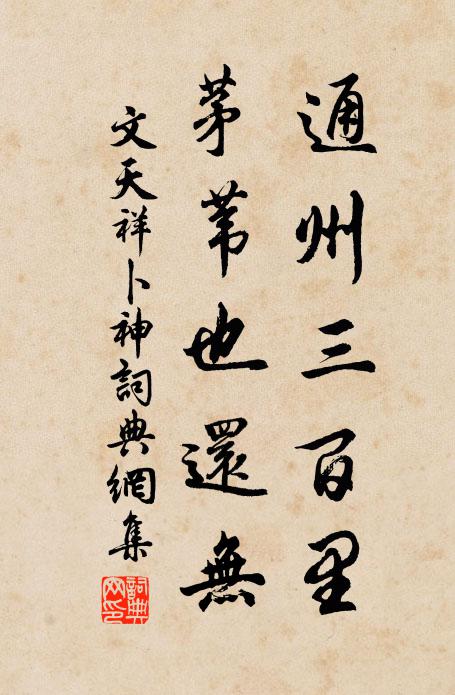 通州三百里
茅葦也還無
文天祥卜神詞典網集
詞典网印